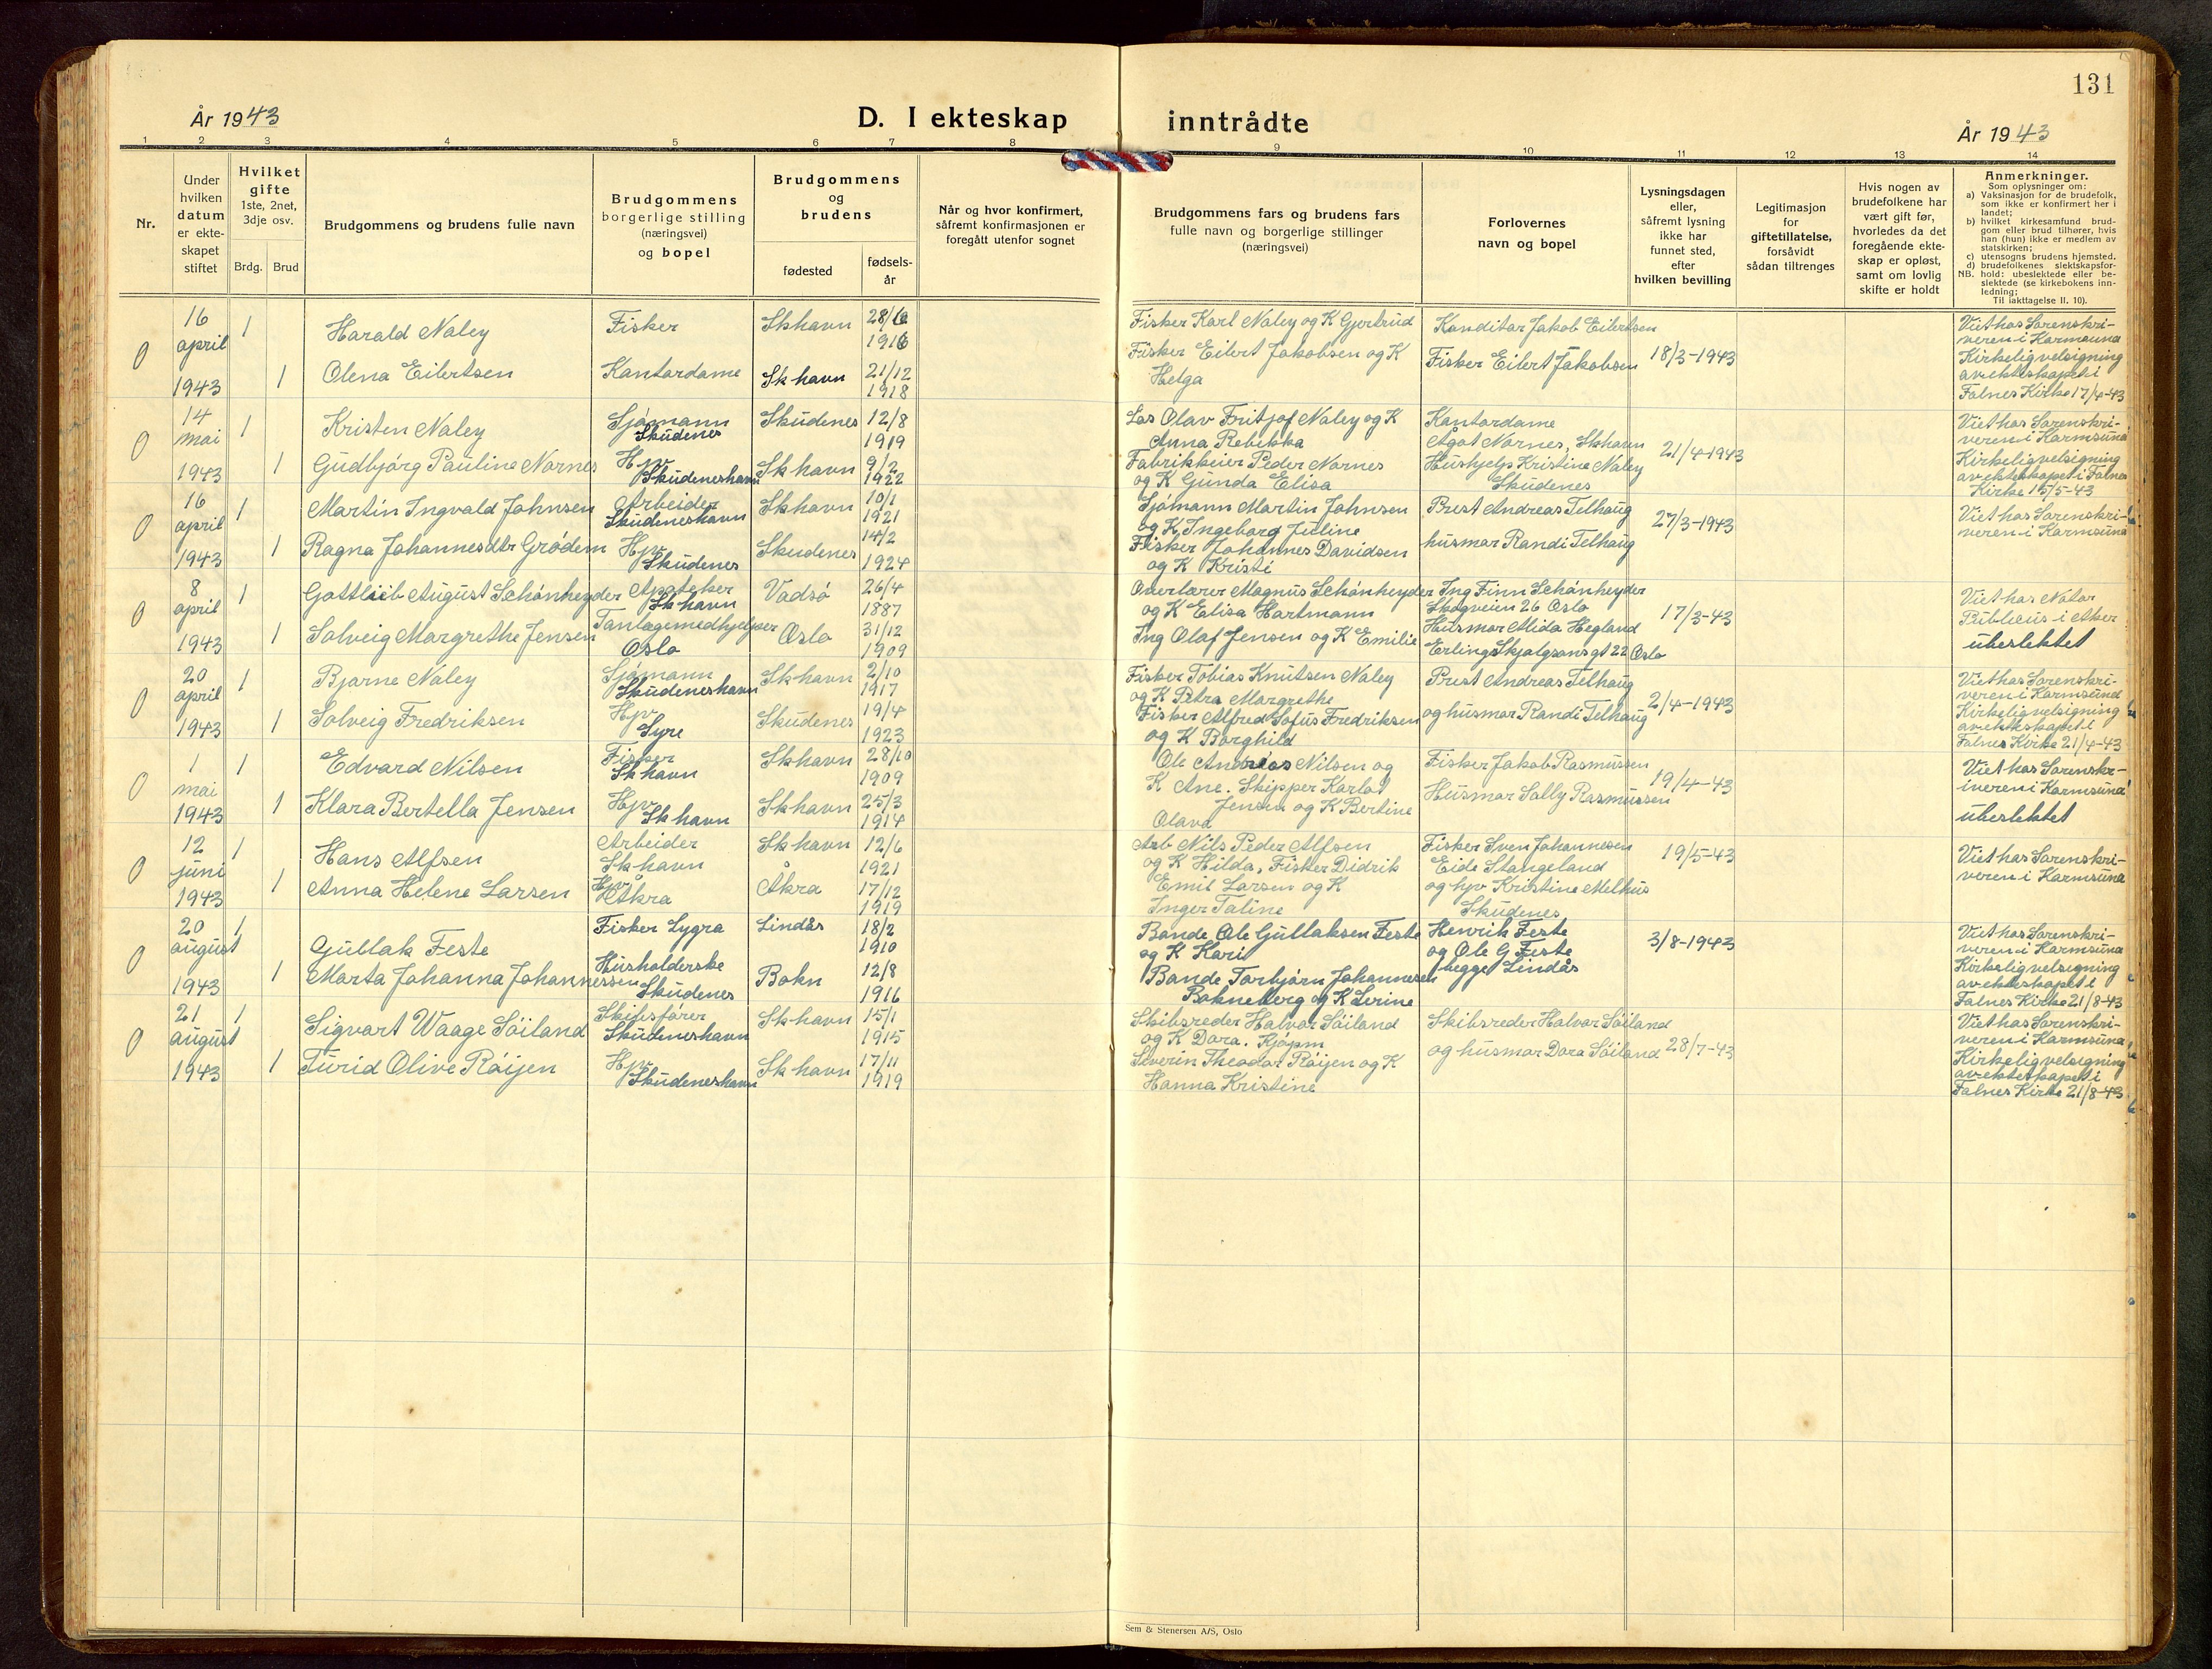 131
År 1943
D. I ekteskap inntrådte
År 1943
1 2 3 4 5 6 7 8 9 10 11 12 13 14
Nr.
Under
hvilken
datum
er ekte-
skapet
stiftet
Hvilket
gifte
1ste, 2net,
3dje osv.
Brdg. Brud
Brudgommens og brudens fulle navn
Brudgommens
borgerlige stilling
(næringsvei)
og bopel
Brudgommens
og
brudens
fødested
fødsels-
år
Når og hvor konfirmert,
såfremt konfirmasjonen er
foregått utenfor sognet
Brudgommens fars og brudens fars
fulle navn og borgerlige stillinger
(næringsvei)
Forlovernes
navn og bopel
Lysningsdagen
eller,
såfremt lysning
ikke har
funnet sted,
efter
hvilken bevilling
Legitimasjon
for
giftetillatelse,
forsåvidt
sådan tiltrenges
Hvis nogen av
brudefolkene har
vært gift før,
hvorledes da det
foregående ekte-
skap er opløst,
samt om lovlig
skifte er holdt
Anmerkninger.
Som oplysninger om:
a) Vaksinasjon for de brudefolk,
som ikke er konfirmert her i
landet;
b) hvilket kirkesamfund brud-
gom eller brud tilhører, hvis
han (hun) ikke er medlem av
statskirken;
c) utensogns brudens hjemsted.
d) brudefolkenes slektskapsfor-
NB. hold: ubeslektede eller be-
slektede (se kirkebokens inn-
ledning;
Til iakttagelse II. 10).
0
16
april
1943
1
Harald Naley
Fisker
Skhavn
28/6
1916
1
Olena Eilertsen
Kontordame
Skhavn
21/12
1918
Fisker Karl Naley og K Gjertrud
Fisker Eilert Jakobsen og K
Helga
Konditor Jakob Eilertsen
Fisker Eilert Jakobsen
18/3-1943
Viet hos Sorenskri-
veren i Karmsund
Kirkelig velsigning
av ekteskapet i
Falnes Kirke 17/4-43
0
14
mai
1943
1
Kristen Naley
Sjømann
Skudenes
Skudenes
12/8
1919
1
Gudbjørg Pauline Nornes
Hjv
Skudeneshavn
Skhavn
9/2
1922
Los Olav Fritjof Naley og K
Anna Rebekka
Fabrikkeier Peder Nornes
og K Gunda Elisa
Kontordame
Ågot Nornes, Skhavn
Hushjelp Kristine Naley
Skudenes
21/4-1943
Viet hos Sorenskri-
veren i Karmsund
Kirkelig velsigning
av ekteskapet i Falnes
Kirke 15/5-43
0
16
april
1943
1
Martin Ingvald Johnsen
Arbeider
Skudeneshavn
Skhavn
10/1
1921
1
Ragna Johannesdtr Grødem
Hjv
Skudenes
Skudenes
14/2
1924
Sjømann Martin Johnsen
og K Ingeborg Juline
Fisker Johannes Davidsen
og K Kristi
Prest Andreas Telhaug
husmor Randi Telhaug
27/3-1943
Viet hos Sorenskri-
veren i Karmsund
0
8
april
1943
1
Gottlieb August Schønheyder
Apoteker
Skhavn
Vadsø
26/4
1887
1
Solveig Margrethe Jensen
Tanlegemedhjelper
Oslo
Oslo
31/12
1909
Overlærer Magnus Schønheyder
og K Elisa Hartmann
Ing Olaf Jensen og K Emilie
Ing Finn Schønheyder
Skogveien 26 Oslo
Husmor Alida Hegland
Erling Skjalgsons gt 22 Oslo
17/3-43
Viet hos Notar
Publicus i Aker
ubeslektet
0
20
april
1943
1
Bjarne Naley
Sjømann
Skudeneshavn
Skhavn
2/10
1917
1
Solveig Fredriksen
Hjv
Syre
Skudenes
19/4
1923
Fisker Tobias Knutsen Naley
og K Petra Margrethe
Fisker Alfred Sofus Fredriksen
og K Borghild
Prest Andreas Telhaug
og husmor Randi Telhaug
2/4-1943
Viet hos Sorenskri-
veren i Karmsund
Kirkelig velsigning
av ekteskapet i
Falnes Kirke 21/4-43
0
1
mai
1943
1
Edvard Nilsen
Fisker
Skhavn
Skhavn
28/10
1909
1
Klara Bertella Jensen
Hjv
Skhavn
Skhavn
25/3
1914
Ole Andreas Nilsen og
K Ane. Skipper Karlot
Jensen og K Bertine
Olava
Fisker Jakob Rasmussen
Husmor Sally Rasmussen
19/4-43
Viet hos Sorenskr-
iveren i Karmsund
ubeslektet
0
12
juni
1943
1
Hans Alfsen
Arbeider
Skhavn
Skhavn
12/6
1921
1
Anna Helene Larsen
Hjv
Åkra
Åkra
17/12
1919
Arb Nils Peder Alfsen
og K Hilda. Fisker Didrik
Emil Larsen og K
Inger Taline
Fisker Sven Johannesen
Eide Stangeland
og hjv Kristine Melhus
Skudenes
19/5-43
Viet hos Sorenskri-
veren i Karmsund
0
20
august
1943
1
Gullak Feste
Fisker Lygra
Lindås
18/2
1910
1
Marta Johanna Johannessen
Husholderske
Skudenes
Bokn
12/8
1916
Bonde Ole Gullaksen Feste
og K Kari
Bonde Torbjørn Johannesen
Bokneberg og K Serine
Henrik Feste
og Ole G Feste
begge Lindås
3/8-1943
Viet hos Sorenskri-
veren i Karmsund
Kirkelig velsigning
av ekteskapet i
Falnes Kirke 21/8-43
0
21
august
1943
1
Sigvart Waage Søiland
Skibsfører
Skudeneshavn
Skhavn
15/1
1915
1
Turid Olive Røijen
Hjv
Skudeneshavn
Skhavn
17/11
1919
Skibsreder Halvor Søiland
og K Dora. Kjøpm
Severin Theodor Røijen og K
Hanna Kristine
Skibsreder Halvor Søiland
og husmor Dora Søiland
28/7-43
Viet hos Sorenskri-
veren i Karmsund
Kirkelig velsigning
av ekteskapet i
Falnes Kirke 21/8-43
Sem & Stenersen A/S, Oslo